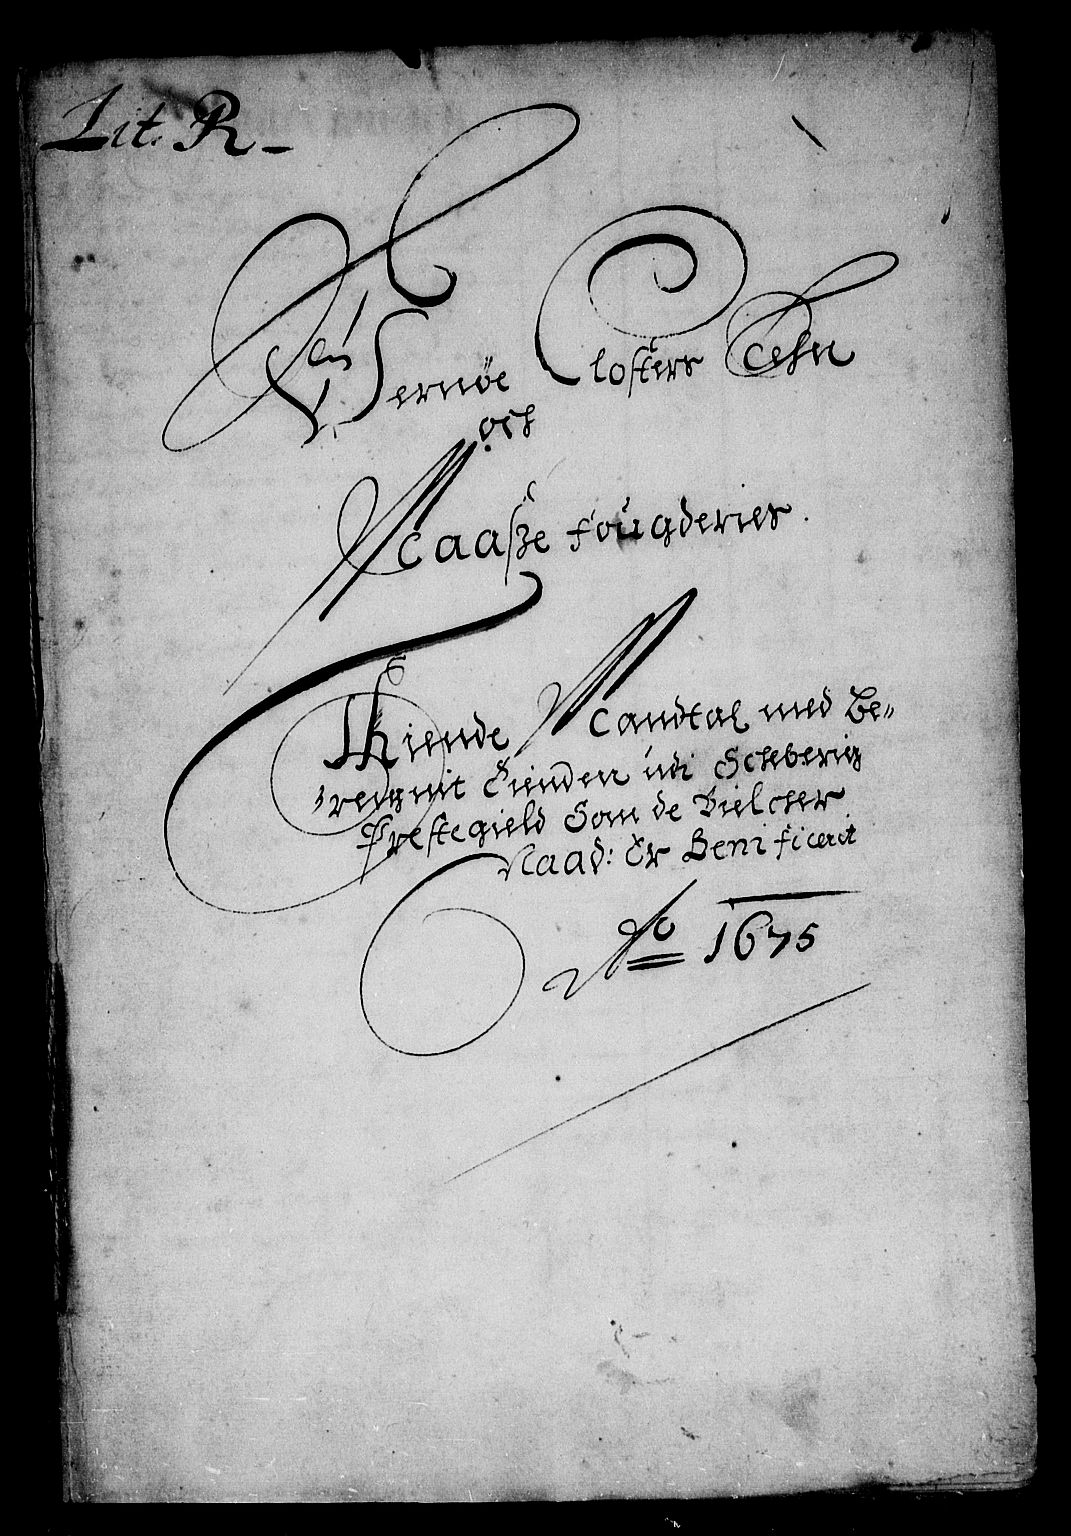 Lit. R
Wernøe Closters Lehn
och
Maasße fougderies.
Tiende Mandtal med Be-
reignit Tienden udi Schiberig
Prestegield Som de Vielcher
Naad: Er Benificerit
Ao 1675